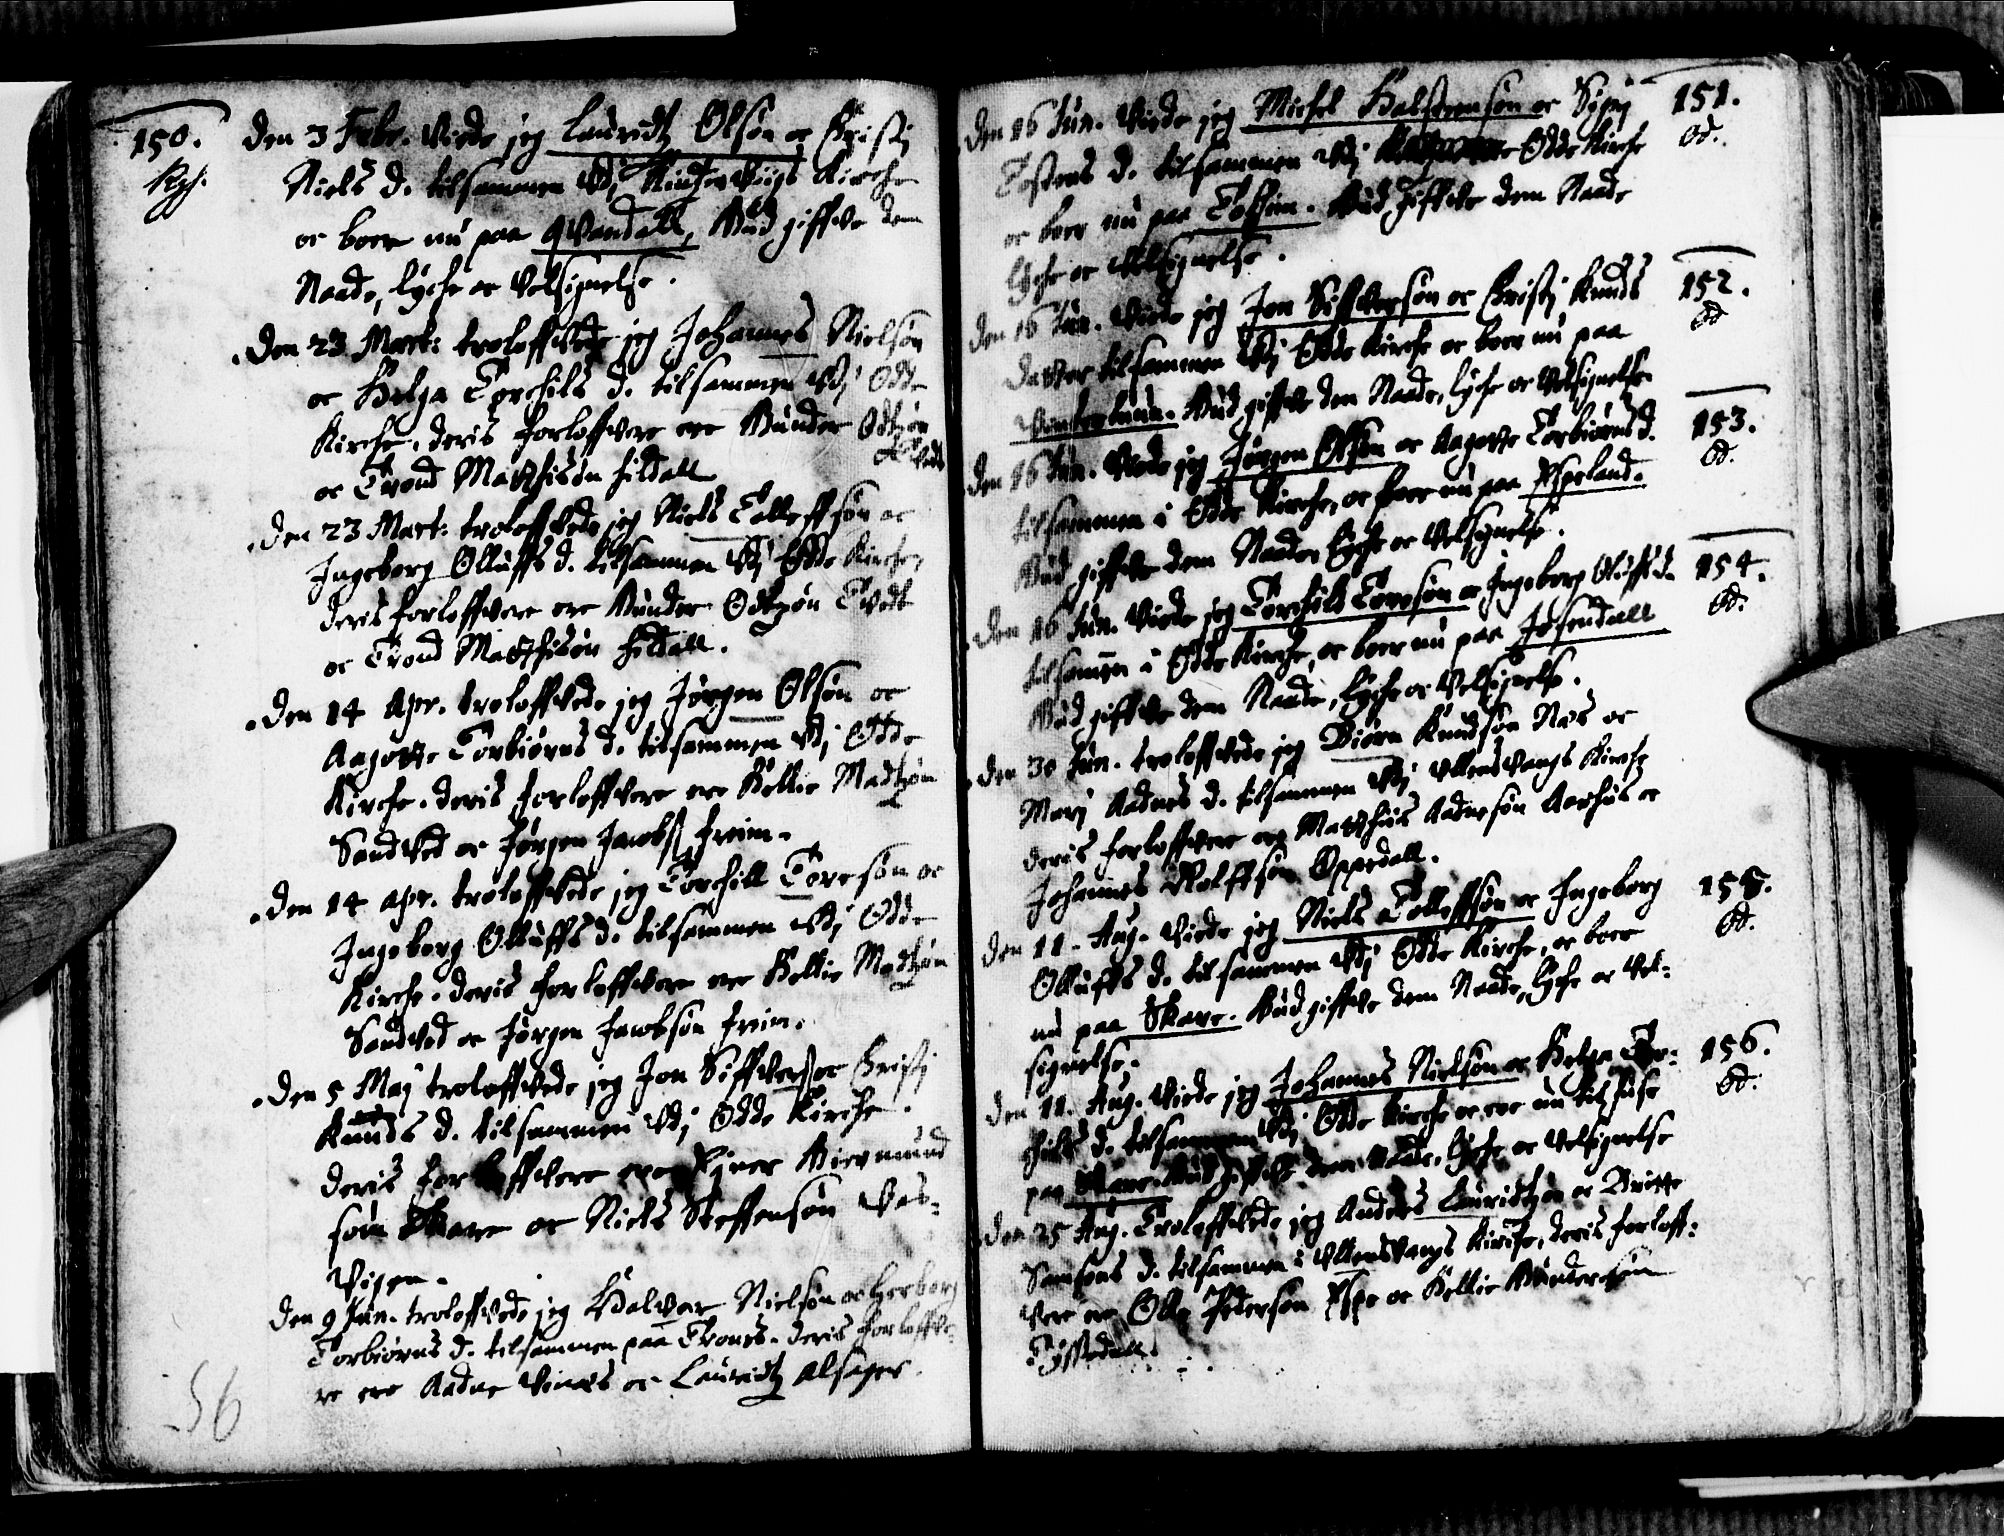 150.
Kh.
Den 3 Febr. Viede jeg Lauridtz Olsøn oc Christj
Niels d. tilsammen Vdj Kinserviigs Kirche
oc boer nu paa qvandall, Gud giffve dem
Naade, lyche oc Velsignelse.
Den 23 Mart: troloffvede jeg Johannes Nielsøn
oc Helga Torchils d. tilsammen Vdj Odde
Kirche. deris forloffvere ere Gunder Odtzøn
Tvedt
oc Trond Matthisøn hildall
Den 23 Mart: troloffvede jeg Niels Tolleffsøn oc
Ingeborg Olluffs d. tilsammen Vdj Odde Kirche,
deris forloffvere ere Gunder Odtzøn Tvedt
oc Trond Matthisøn hildall.
Den 14 Apr. troloffvede jeg Jørgen Olsøn oc
Aagotte Torbiørns d. tilsammen Vdj Odde
Kirche. deris forloffvere ere Hellie Madtzøn
Sandved oc Jørgen Jacobs Freim.
Den 14 apr. troloffvede jeg Torchill Toresøn oc
Ingeborg Olluffs d. tilsammen Vdj Odde
Kirche. deris forloffvere ere Hellie Madtzøn
Sandved oc Jørgen Jacobsøn Freim.
Den 5 Maj troloffvede jeg Jon Siffvers oc Christj
Knuds d. tilsammen Vdj Odde Kirche.
deris forloffvere ere Ejner Giermund
søn Skare oc Niels Steffensøn Vas-
vigen.
Den 9 Jun. troloffvede jeg Halvor Nielsøn oc Herborg
Torbiørns d. tilsammen paa Trones. deris forloffve-
re ere Aadne Vines oc Lauridtz Alsager.
56
Den 16 Jun. Viede jeg Michel Halstensøn oc Signj
Tostens d. tilsammen Vdj Odde Kirche
oc boer nu paa Tochem. Gud giffve dem Naade
lyche oc Velsignelse.
151.
Od.
Den 16 Jun. Viede jeg Jon Siffversøn oc Christj Knuds
daatter tilsammen Vdj Odde Kirche oc boer nu paa
Vinterthuun. Gud giffve dem Naade, lyche oc Velsignelse.
152.
Od
Den 16 Jun. Viede jeg Jørgen Olsøn oc Aagotte Torbiørns d.
tilsammen i Odde Kirche, oc boer nu paa Espeland.
Gud giffve dem Naade, lyche oc Velsignelse.
153.
Od.
Den 16 Jun. Viede jeg Torchild Toresøn oc Ingeborg Oluffs d.
tilsamen i Odde Kirche, oc boer nu paa Jøsendall
Gud giffve dem Naade, lyche oc Velsignelse.
154.
Od.
Den 30 Jun. troloffvede jeg Biørn Knudsøn Næs oc
Marj Aadnes d. tilsammen Vdj Ullensvangs Kirche
deris forloffvere ere Matthias Aadnesøn Aarhus oc
Johannes Rolffsøn Oppedall.
Den 11. Aug. Viede jeg Niels Tolleffsøn oc Ingeborg
Olluffs d. tilsammen Vdj Odde Kirche, oc boer
nu paa Skare. Gud giffve dem Naade, lyche oc Vel-
signelse.
155.
Od.
Den 11. Aug. Viede jeg Johannes Nielsøn oc Helga Tor-
chils d. tilsammen Vdj Odde Kirche oc ere nu til huse
paa Skare. Gud giffve dem Naade, lyche oc Velsignelse
156.
Od.
Den 25 Aug. Troloffvede jeg Anders Lauridtzøn oc Britte
Samsons d. tilsammen i Ullensvangs Kirche, deris forloff-
vere ere Olle Pedersøn Espe oc Hellie Gundersøn
Tyssedall.